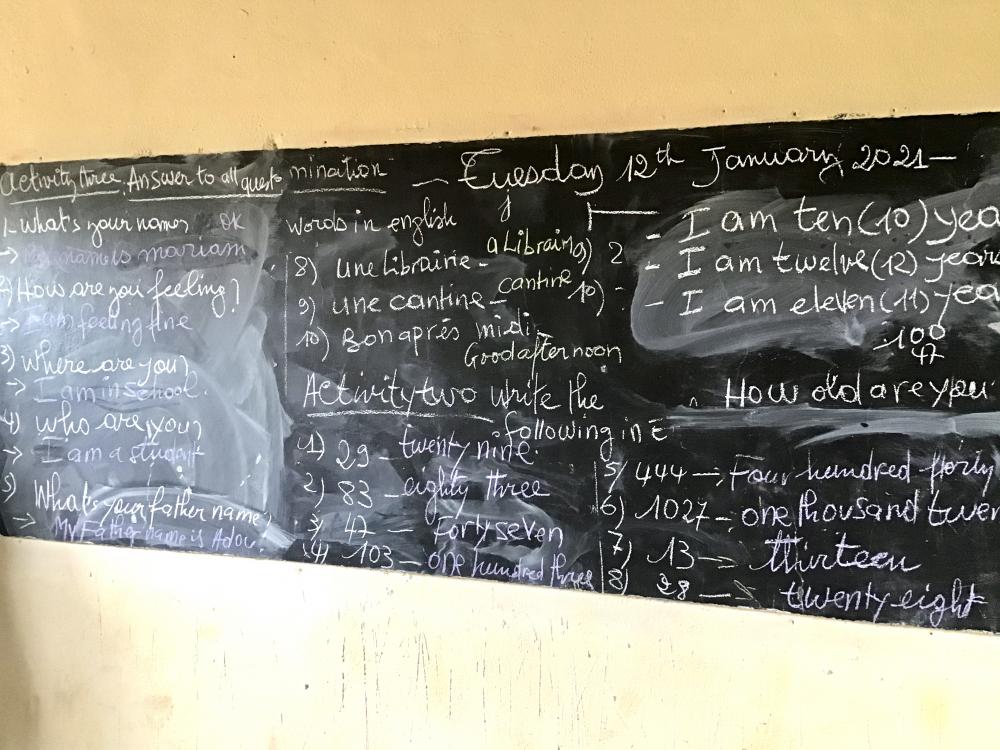 Activity three Answer to all quest
1- What's your name? ok
→ My name is mariam
2) How are you feeling?
→ I am feeling fine
3) Where are you?
→ I am in school.
4) who are you?
→ I am a student
5) What's your father name?
→ My Father name is Adou.
mination
words in english
8) une Librairie - a Librairy
9) une cantine - cantine
10) Bon aprés midi
Good afternoon
Activity two write the
following in E
1) 29 - twenty nine.
2) 83 - eighty three
3) 47 - Forty seven
4) 103 - one hundred three
— Tuesday 12th January 2021 —
9) 2
10)
- I am ten (10) yea
- I am twelve (12) years
- I am eleven (11) yea
100
47
How old are you
5) 444 → Four hundred florty
6) 1027 - one thousand twen
7) 13 → thirteen
8) 28 → twenty eight